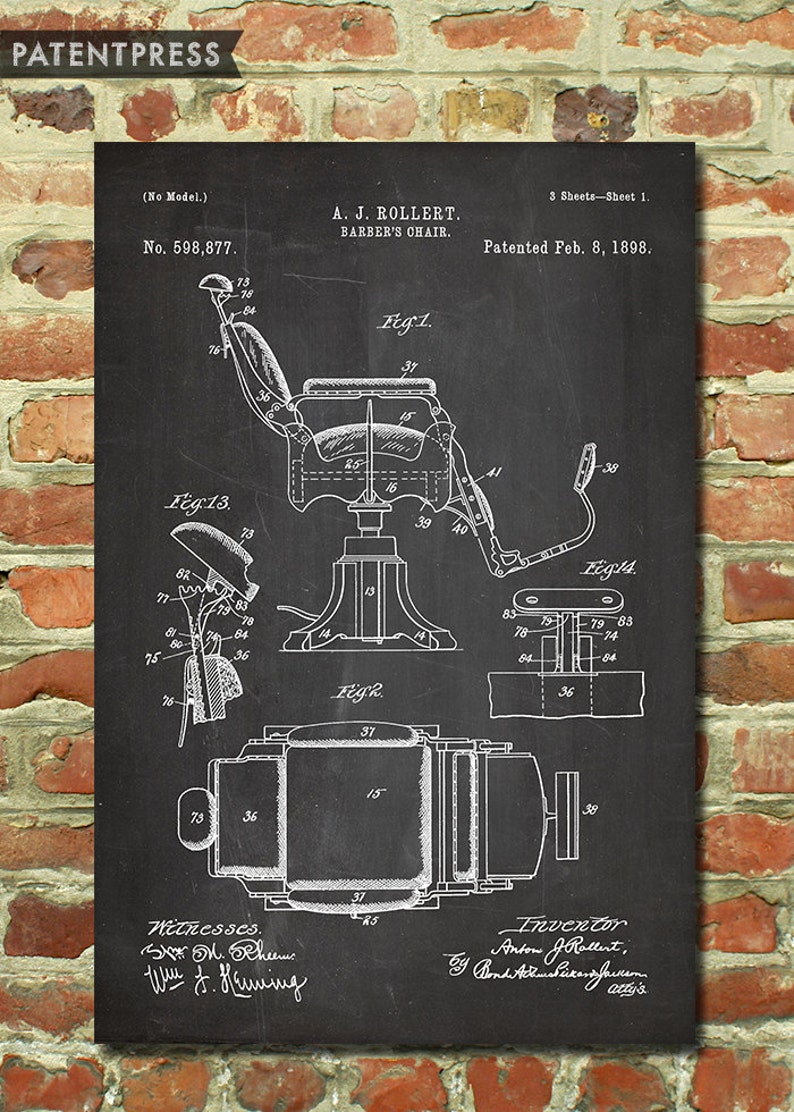 PATENTPRESS
(No Model.)
3 Sheets—Sheet 1.
A. J. ROLLERT.
BARBER'S CHAIR.
No. 598,877.
Patented Feb. 8, 1898.
Fig. 1.
73
78
84
76
36
37
15
25
16
39
40
41
38
13
14
14
Fig. 13.
73
82
77
83
79
78
81
80
74
84
75
36
76
Fig. 14.
83
83
79
79
78
74
84
84
36
Fig. 2.
37
73
36
15
38
37
25
Witnesses.
Wm. M. Rheem
Wm F. Henning
Inventor
Anton J. Rollert,
by Bond Adams Pickard & Jackson
Att'ys.